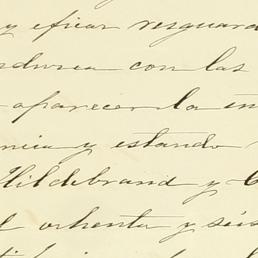 y eficaz resguard
con las
aparecer la in
ncia y estando
Hildebrand y C
ochenta y seis